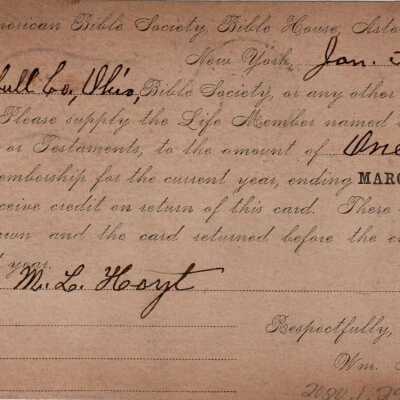 merican Bible Society, Bible House, Asto
New York, Jan.
bull Co, Ohio, Bible Society, or any other
Please supply the Life Member named
or Testaments, to the amount of One
embership for the current year, ending MARC
ceive credit on return of this card. There
wn and the card returned before the c
year.
M. L. Hoyt
Respectfully,
Wm.